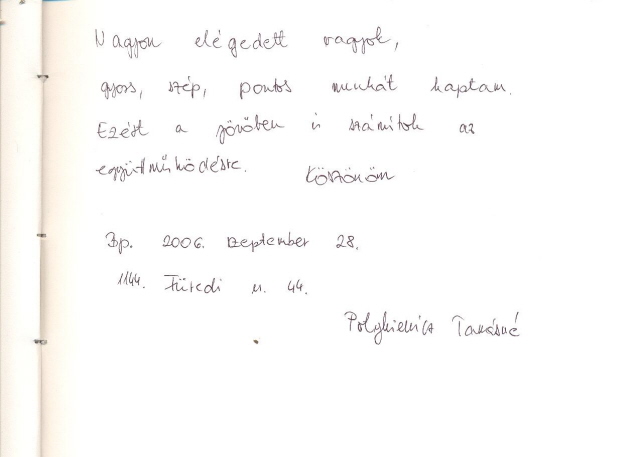 Nagyon elégedett vagyok,
gyors, szép, pontos munkát kaptam.
Ezért a jövőben is számítok az
együttműködésre. Köszönöm
Bp. 2006. szeptember 28.
1144. Füredi u. 44.
Tamásné